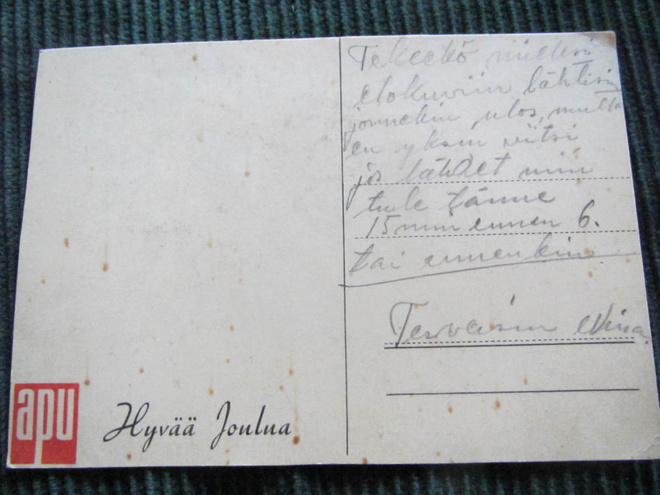 Tekeekö mielesi
elokuviin lähtisin
jonnekin ulos, mutta
en yksin viitsi
jos lähdet niin
tule tänne
15 min ennen 6.
tai ennenkin
Terveisin
apu
Hyvää Joulua